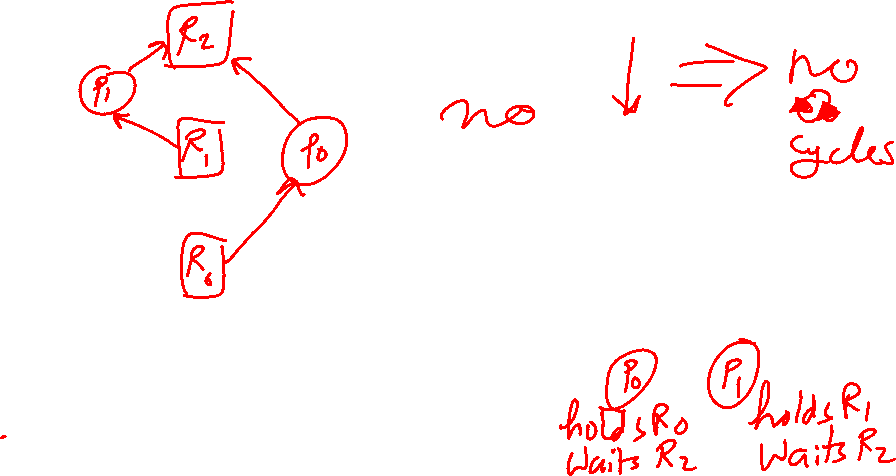 R2
P1
R1
P0
R0
no
no
cycles
P0
holds R0
waits R2
P1
holds R1
waits R2